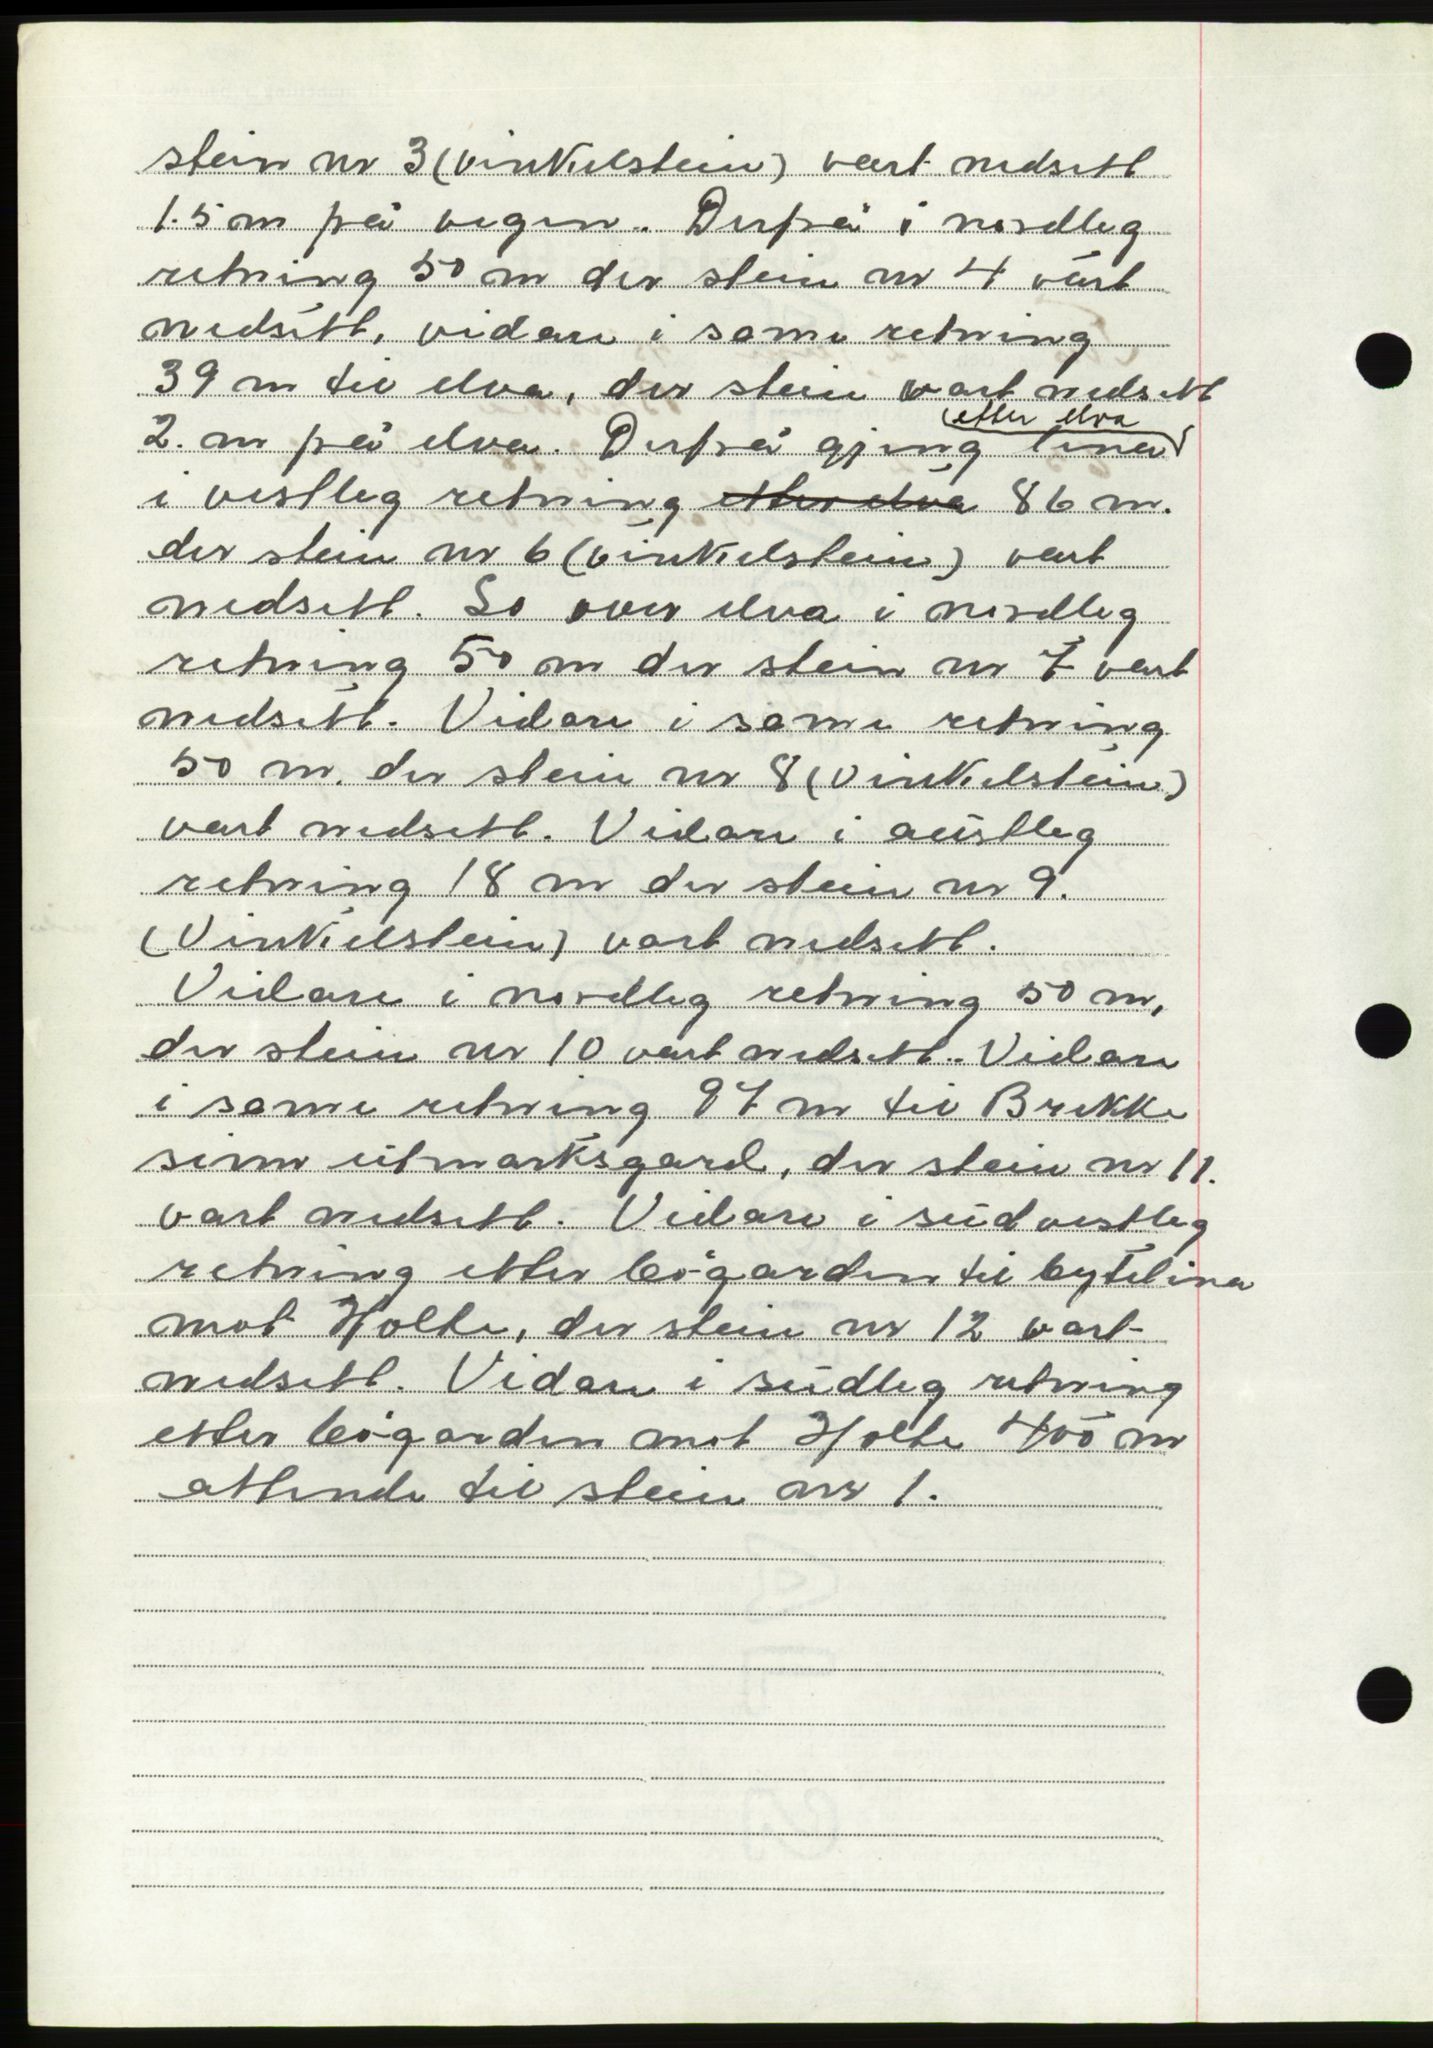 stein nr 3 (vinkelstein) vart nedsett
1.5 m frå vegen. Derfrå i nordleg
retning 50 m der stein nr 4 vart
nedsett, vidare i same retning
39 m til elva, der stein vart nedsett
etter elva
2. m frå elva. Derfrå gjeng lina
i vestleg retning etter elva 86 m.
der stein nr 6 (vinkelstein) vart
nedsett. So over elva i nordleg
retning 50 m der stein nr 7 vart
nedsett. Vidare i same retning
50 m. der stein nr 8 (vinkelstein)
vart nedsett. Vidare i austleg
retning 18 m der stein nr 9.
(Vinkelstein) vart nedsett.
Vidare i nordleg retning 50 m,
der stein nr 10 vart nedsett. Vidare
i same retning 97 m til Brekke
sinn utmarksgard, der stein nr 11.
vart nedsett. Vidare i sudvestleg
retning etter bøgarden til bytelina
mot Holte, der stein nr 12 vart
nedsett. Vidare i sudleg retning
etter bøgarden mot Holte 400 m
attende til stein nr 1.